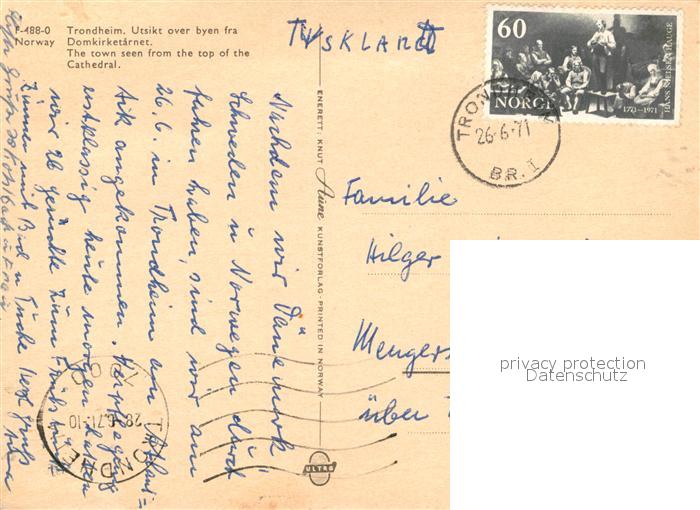 F-488-0 Trondheim. Utsikt over byen fra
Norway Domkirketårnet.
The town seen from the top of the
Cathedral.
TYSKLAND
60
NORGE
1771-1971
HANS NIELSEN HAUGE
TRONDHEIM
26-6-71
BR. I
ENERETT: KNUT Aune KUNSTFORLAG - PRINTED IN NORWAY
ULTRA
Nachdem wir Dänemark
Schweden u Norwegen durch
fahren haben, sind wir am
26.6. in Trondheim am Atlan=
tik angekommen. Verpflegung
erstklassig heute morgen hatten
wir 26 Gerichte zum Frühstück
Zimmer mit Bad u Dusche
Familie
Hilger
Mengers
über
TRONDHEIM
28.6.71-10
privacy protection
Datenschutz